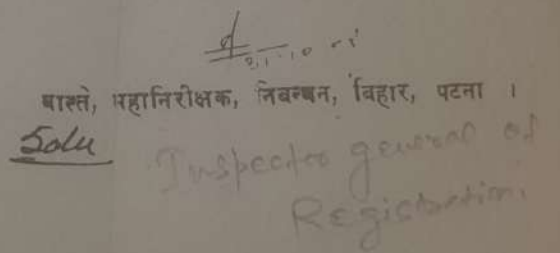 वास्ते, महानिरीक्षक, निबन्धन, बिहार, पटना ।
Inspector general of
Registration